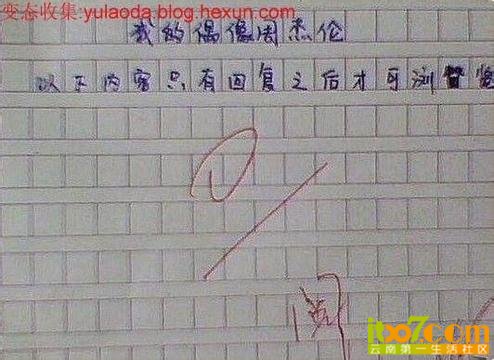 变态收集:yulaoda.blog.hexun.com
我的偶像周杰伦
以下内容只有回复之后才可浏览
阅
itbo7com
云南第一生活社区